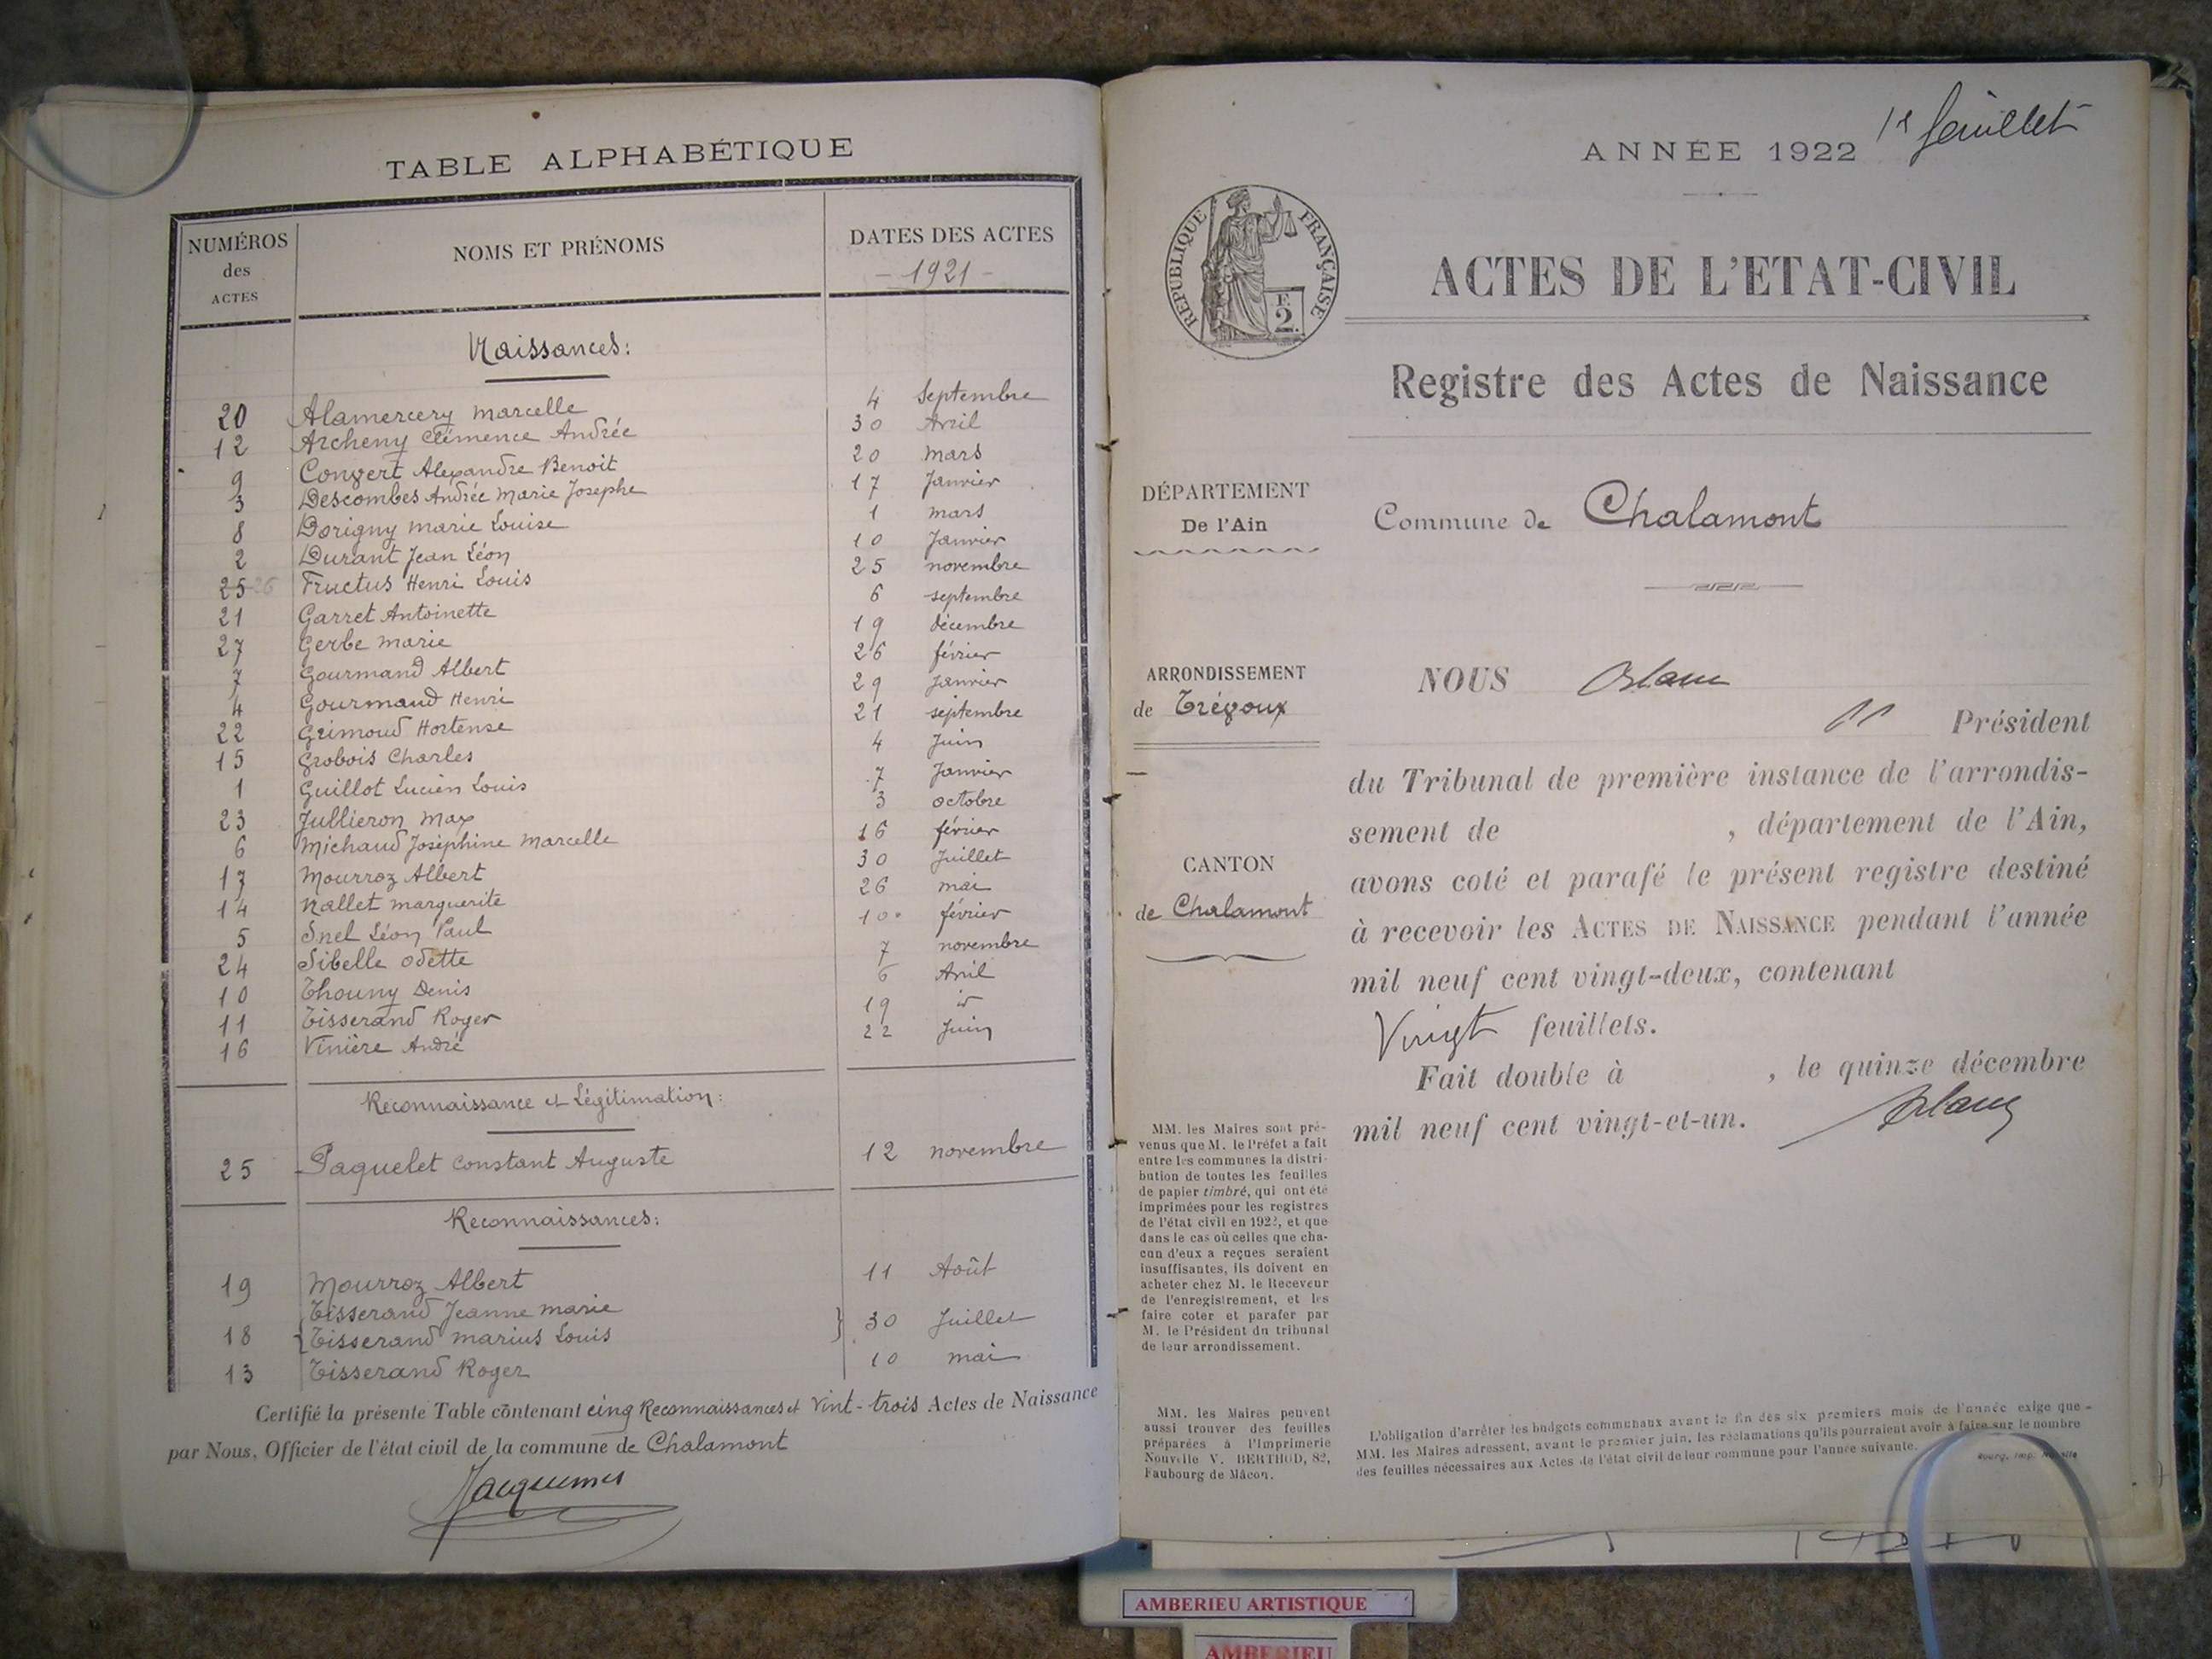 TABLE ALPHABÉTIQUE
NUMÉROS des ACTES
NOMS ET PRÉNOMS
DATES DES ACTES
- 1921 -
Naissances:
20 Alamercery Marcelle 4 Septembre
12 Archeny Clémence Andrée 30 Avril
9 Convert Alexandre Benoit 20 mars
3 Descombes Andrée Marie Josephe 17 Janvier
8 Dorigny Marie Louise 1 mars
2 Durant Jean Léon 10 Janvier
25-26 Fructus Henri Louis 25 novembre
21 Garret Antoinette 6 septembre
27 Gerbe Marie 19 décembre
7 Gourmand Albert 26 février
4 Gourmand Henri 29 Janvier
22 Grimoud Hortense 21 septembre
15 Grobois Charles 4 Juin
1 Guillot Lucien Louis 7 Janvier
23 Jullieron Max 3 octobre
6 Michaud Joséphine Marcelle 16 février
17 Mourroz Albert 30 Juillet
14 Nallet Marguerite 26 mai
5 Snel Léon Paul 10 février
24 Sibelle Odette 7 novembre
10 Thouny Denis 6 Avril
11 Tisserand Roger 19 id
16 Vinière André 22 Juin
Reconnaissance et Légitimation:
25 Paquelet Constant Auguste 12 novembre
Reconnaissances:
19 Mourroz Albert 11 Août
Tisserand Jeanne Marie
18 { Tisserand Marius Louis } 30 Juillet
13 Tisserand Roger 10 mai
Certifié la présente Table contenant cinq Reconnaissances et Vint-trois Actes de Naissance
par Nous, Officier de l'état civil de la commune de Chalamont
Jacquemet
ANNÉE 1922
1er feuillet
RÉPUBLIQUE FRANÇAISE
F. 2.
ACTES DE L'ETAT-CIVIL
Registre des Actes de Naissance
DÉPARTEMENT
De l'Ain
Commune de Chalamont
ARRONDISSEMENT
de Trévoux
CANTON
de Chalamont
NOUS
Président
du Tribunal de première instance de l'arrondis-
sement de , département de l'Ain,
avons coté et parafé le présent registre destiné
à recevoir les ACTES DE NAISSANCE pendant l'année
mil neuf cent vingt-deux, contenant
Vingt feuillets.
Fait double à , le quinze décembre
mil neuf cent vingt-et-un.
MM. les Maires sont pré-
venus que M. le Préfet a fait
entre les communes la distri-
bution de toutes les feuilles
de papier timbré, qui ont été
imprimées pour les registres
de l'état civil en 1922, et que
dans le cas où celles que cha-
cun d'eux a reçues seraient
insuffisantes, ils doivent en
acheter chez M. le Receveur
de l'enregistrement, et les
faire coter et parafer par
M. le Président du tribunal
de leur arrondissement.
MM. les Maires peuvent
aussi trouver des feuilles
préparées à l'Imprimerie
Nouvelle V. BERTHOD, 82,
Faubourg de Mâcon.
L'obligation d'arrêter les budgets communaux avant la fin des six premiers mois de l'année exige que
MM. les Maires adressent, avant le premier juin, les réclamations qu'ils pourraient avoir à faire sur le nombre
des feuilles nécessaires aux Actes de l'état civil de leur commune pour l'année suivante.
Bourg, Imp.
AMBERIEU ARTISTIQUE
AMBERIEU